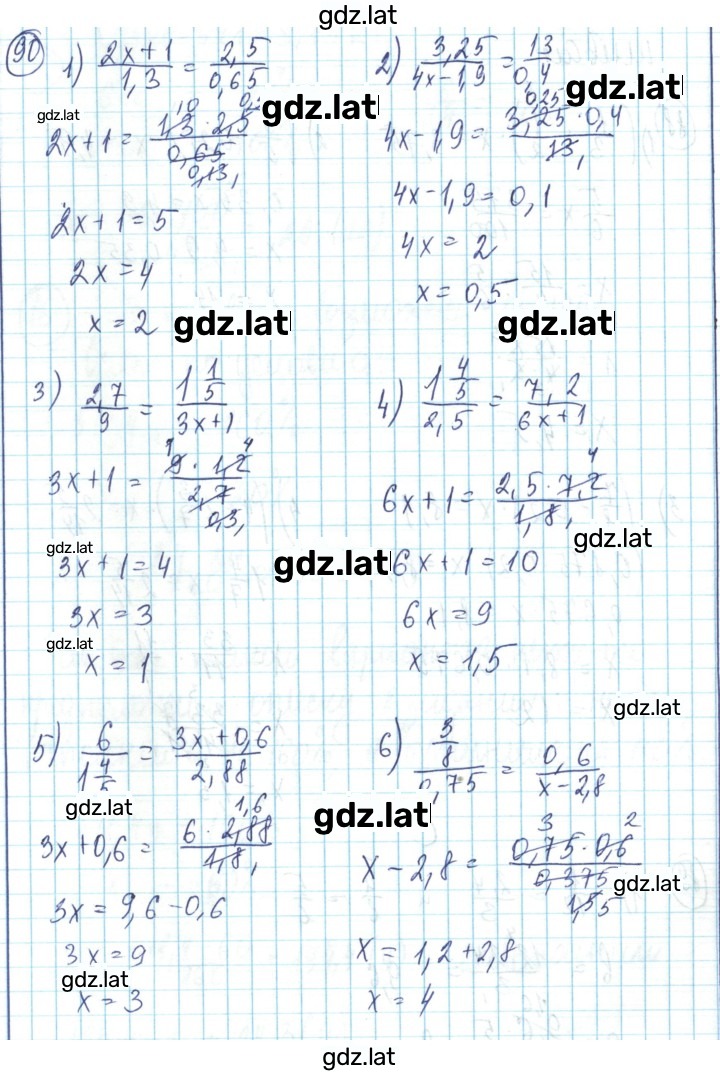 gdz.lat
90
1) (2x+1)/1,3 = 2,5/0,65
2) 3,25/(4x-1,9) = 13/0,4
gdz.lat gdz.lat gdz.lat
2x+1 = (1,3 · 2,5)/0,65
10
0,13
1
4x-1,9 = (3,25 · 0,4)/13
0,25
1
2x+1=5
4x-1,9 = 0,1
2x = 4
4x = 2
x = 2
x = 0,5
gdz.lat gdz.lat
3) 2,7/9 = 1 1/5/(3x+1)
4) 1 4/5/2,5 = 7,2/(6x+1)
3x+1 = (9 · 1,2)/2,7
1 4
0,3
1
6x+1 = (2,5 · 7,2)/1,8
4
1
gdz.lat
gdz.lat gdz.lat
3x+1=4
6x+1=10
3x = 3
6x = 9
gdz.lat
x = 1
x = 1,5
gdz.lat
5) 6/1 4/5 = (3x+0,6)/2,88
6) 3/8/0,75 = 0,6/(x-2,8)
gdz.lat gdz.lat
3x+0,6 = (6 · 2,88)/1,8
1,6
1
x-2,8 = (0,75 · 0,6)/0,375
3 2
gdz.lat
3x = 9,6-0,6
3x = 9
x = 1,2+2,8
gdz.lat
x = 3
x = 4
gdz.lat